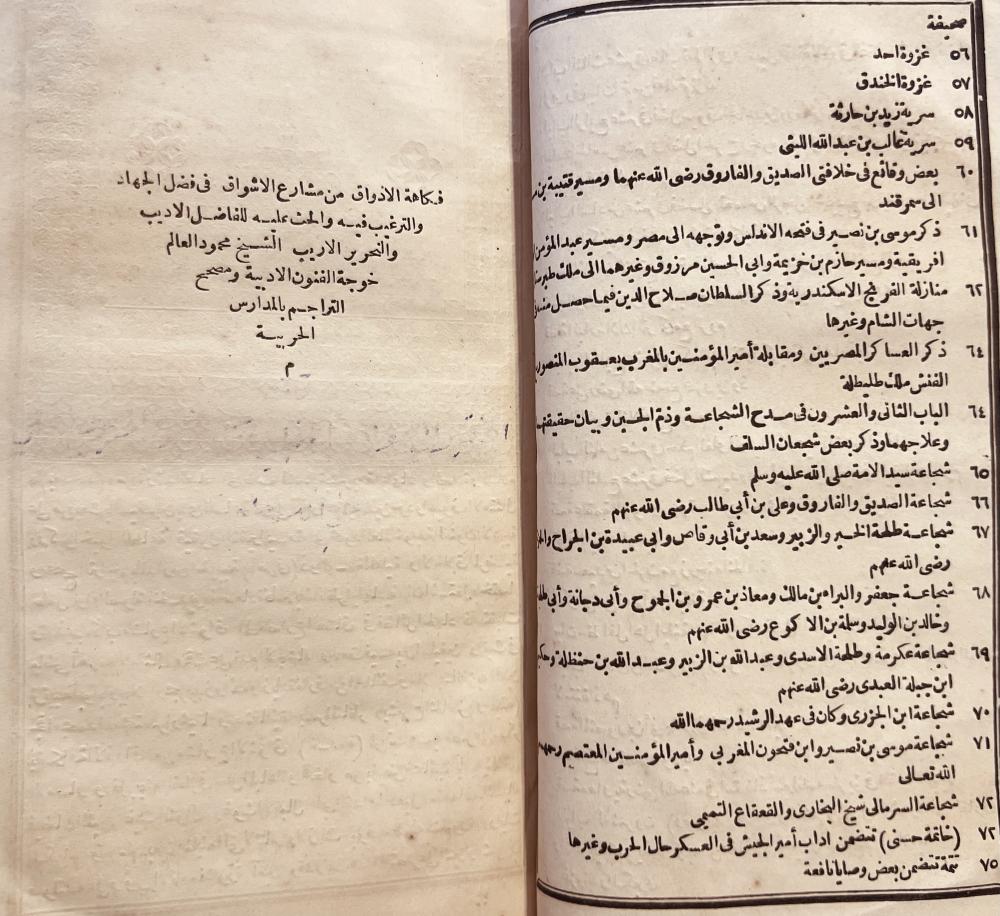 صحيفة
٥٦ غزوة احد
٥٧ غزوة الخندق
٥٨ سرية زيد بن حارثة
٥٩ سرية غالب بن عبد الله الليثي
٦٠ بعض وقائع في خلافتي الصديق والفاروق رضى الله عنهما ومسير قتيبة بن
الى سمرقند
٦١ ذكر موسى بن نصير في فتحه الاندلس وتوجهه الى مصر ومسير عبد المؤمن
افريقية ومسير حازم بن خزيمة وابي الحسين مرزوق وغيرهما الى ملك
٦٢ منازلة الفرنج الاسكندرية وذكر السلطان صلاح الدين فيما حصل
جهات الشام وغيرها
٦٤ ذكر العساكر المصريين ومقابلة أمير المؤمنين بالمغرب يعقوب المنصور
الفنش ملك طليطلة
٦٤ الباب الثاني والعشرون في مدح الشجاعة وذم الجبن وبيان حقيقتهما
وعلاجهما وذكر بعض شجعان السلف
٦٥ شجاعة سيد الامة صلى الله عليه وسلم
٦٦ شجاعة الصديق والفاروق وعلى بن أبي طالب رضى الله عنهم
٦٧ شجاعة طلحة الخير والزبير وسعد بن أبي وقاص وابي عبيدة بن الجراح
رضى الله عنهم
٦٨ شجاعة جعفر والبراء بن مالك ومعاذ بن عمرو بن الجموح وأبي دجانة وأبي طلحة
وخالد بن الوليد وسلمة بن الاكوع رضى الله عنهم
٦٩ شجاعة عكرمة وطلحة الاسدى وعبد الله بن الزبير وعبد الله بن حنظلة
ابن جبلة العبدى رضى الله عنهم
٧٠ شجاعة ابن الجزرى وكان في عهد الرشيد رحمهما الله
٧١ شجاعة موسى بن نصير وابن فتحون المغربي وأمير المؤمنين المعتصم
الله تعالى
٧٢ شجاعة السرمالى شيخ البخارى والقعقاع التميمي
٧٢ (خاتمة حسنى) تتضمن اداب أمير الجيش في العسكر حال الحرب وغيرها
٧٥ تتمة تتضمن بعض وصايا نافعة
فكاهة الاذواق من مشارع الاشواق في فضل الجهاد
والترغيب فيه والحث عليه للفاضل الاديب
والنحرير الاريب الشيخ محمود العالم
خوجة الفنون الادبية ومصحح
التراجم بالمدارس
الحربية
م